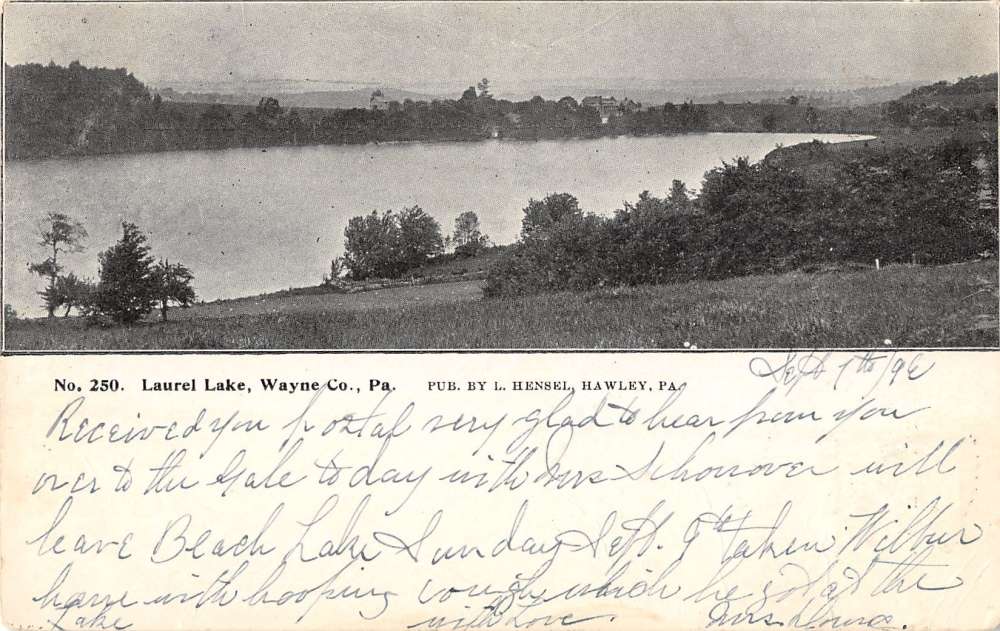 No. 250. Laurel Lake, Wayne Co., Pa. PUB. BY L. HENSEL, HAWLEY, PA.
Sept 7th/06
Received you postal very glad to hear from you
over to the Gale to day with Mrs Schonover will
leave Beach Lake Sunday Sept. 9th taken Wilbur
home with hooping cough which he got at the
Lake with Love. Mrs